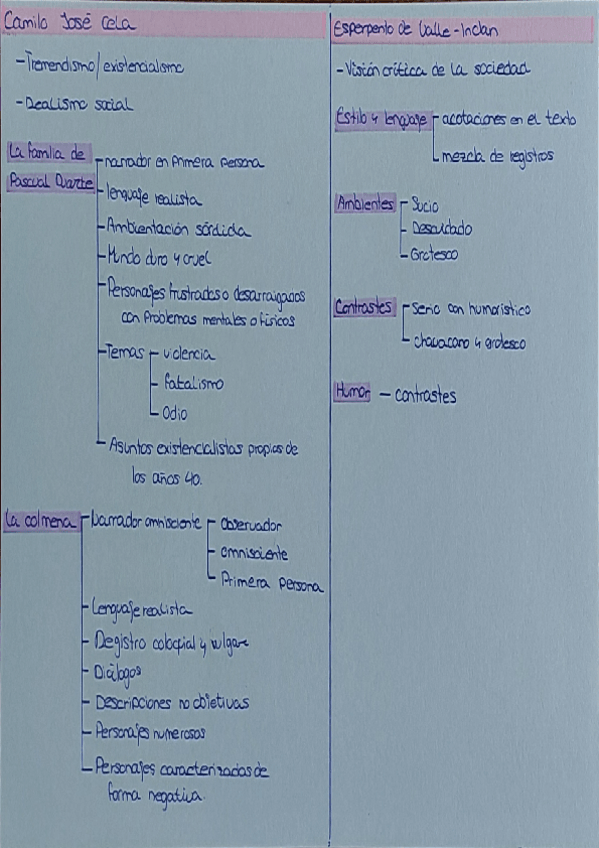 Camilo José Cela
-Tremendismo/existencialismo
-Realismo social
La familia de
Pascual Duarte
-narrador en primera persona
-lenguaje realista
-Ambientación sórdida
-Mundo duro y cruel
-Personajes frustrados o desarraigados
con problemas mentales o físicos
-Temas - violencia
- fatalismo
- Odio
- Asuntos existencialistas propios de
los años 40.
La colmena - Narrador omnisciente - Observador
- omnisciente
- Primera persona
- Lenguaje realista
- Registro coloquial y vulgar
- Diálogos
- Descripciones no objetivas
- Personajes numerosos
- Personajes caracterizados de
forma negativa.
Esperpento de Valle-Inclan
-Visión crítica de la sociedad
Estilo y lenguaje - acotaciones en el texto
- mezcla de registros
Ambientes - Sucio
- Descuidado
- Grotesco
Contrastes - Serio con humorístico
- chavacano y grotesco
Humor - contrastes